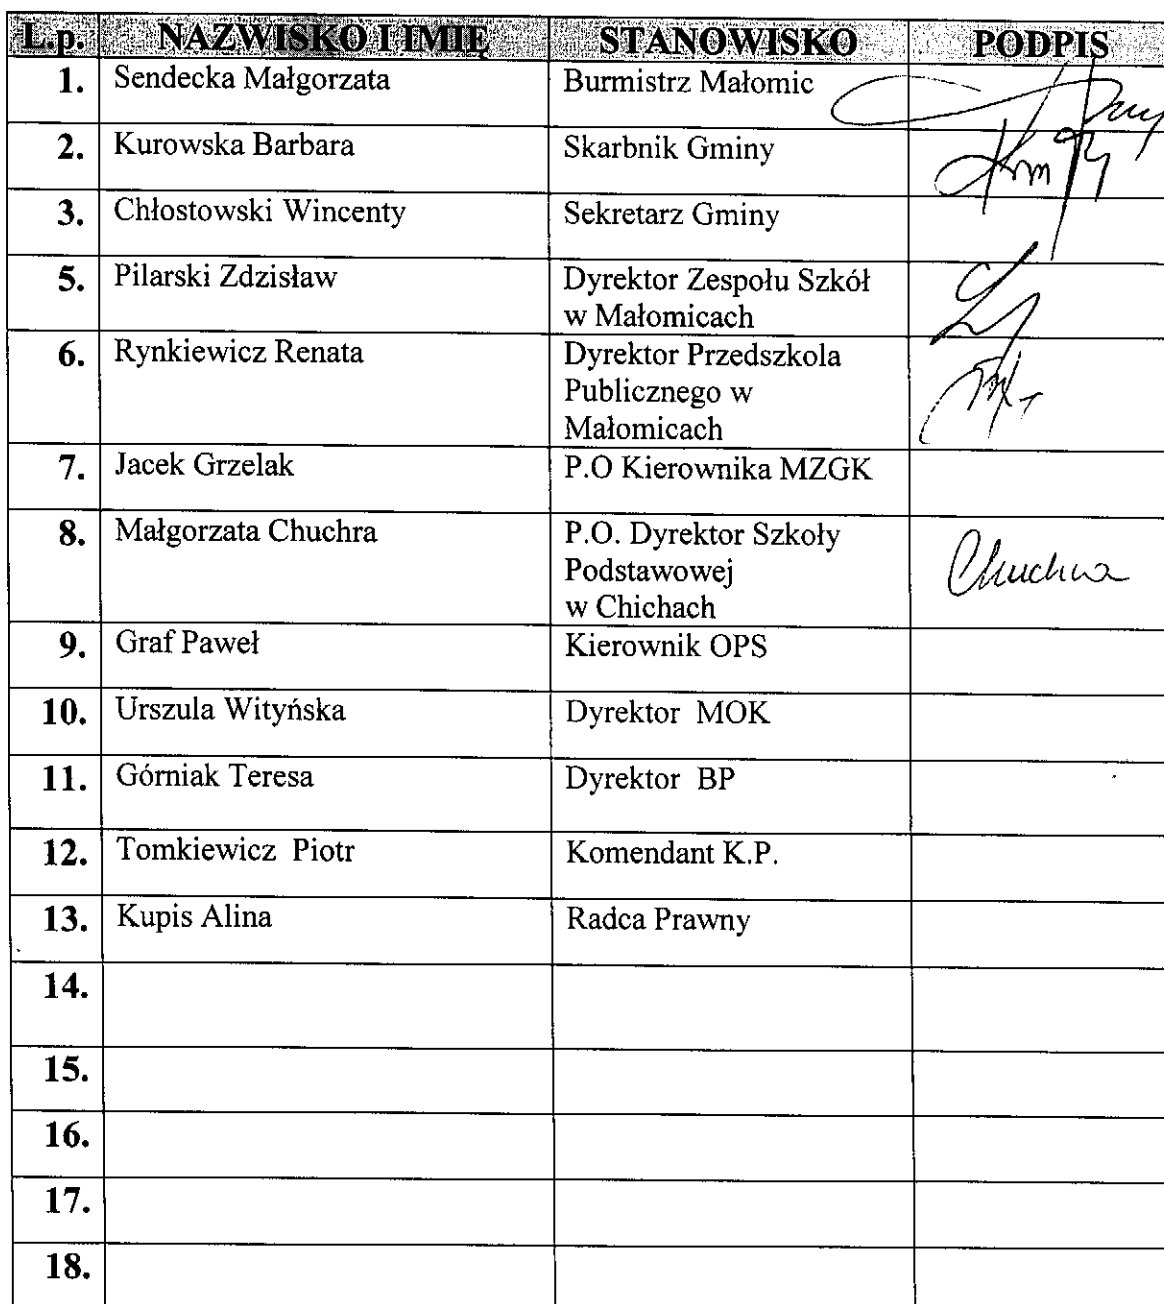 L.p. NAZWISKO I IMIĘ STANOWISKO PODPIS
1. Sendecka Małgorzata Burmistrz Małomic
2. Kurowska Barbara Skarbnik Gminy
3. Chłostowski Wincenty Sekretarz Gminy
5. Pilarski Zdzisław Dyrektor Zespołu Szkół
w Małomicach
6. Rynkiewicz Renata Dyrektor Przedszkola
Publicznego w
Małomicach
7. Jacek Grzelak P.O Kierownika MZGK
8. Małgorzata Chuchra P.O. Dyrektor Szkoły
Podstawowej Chuchra
w Chichach
9. Graf Paweł Kierownik OPS
10. Urszula Wityńska Dyrektor MOK
11. Górniak Teresa Dyrektor BP
12. Tomkiewicz Piotr Komendant K.P.
13. Kupis Alina Radca Prawny
14.
15.
16.
17.
18.